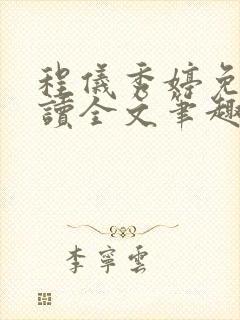 程儀秀婷免
讀全文筆趣
李寧雲